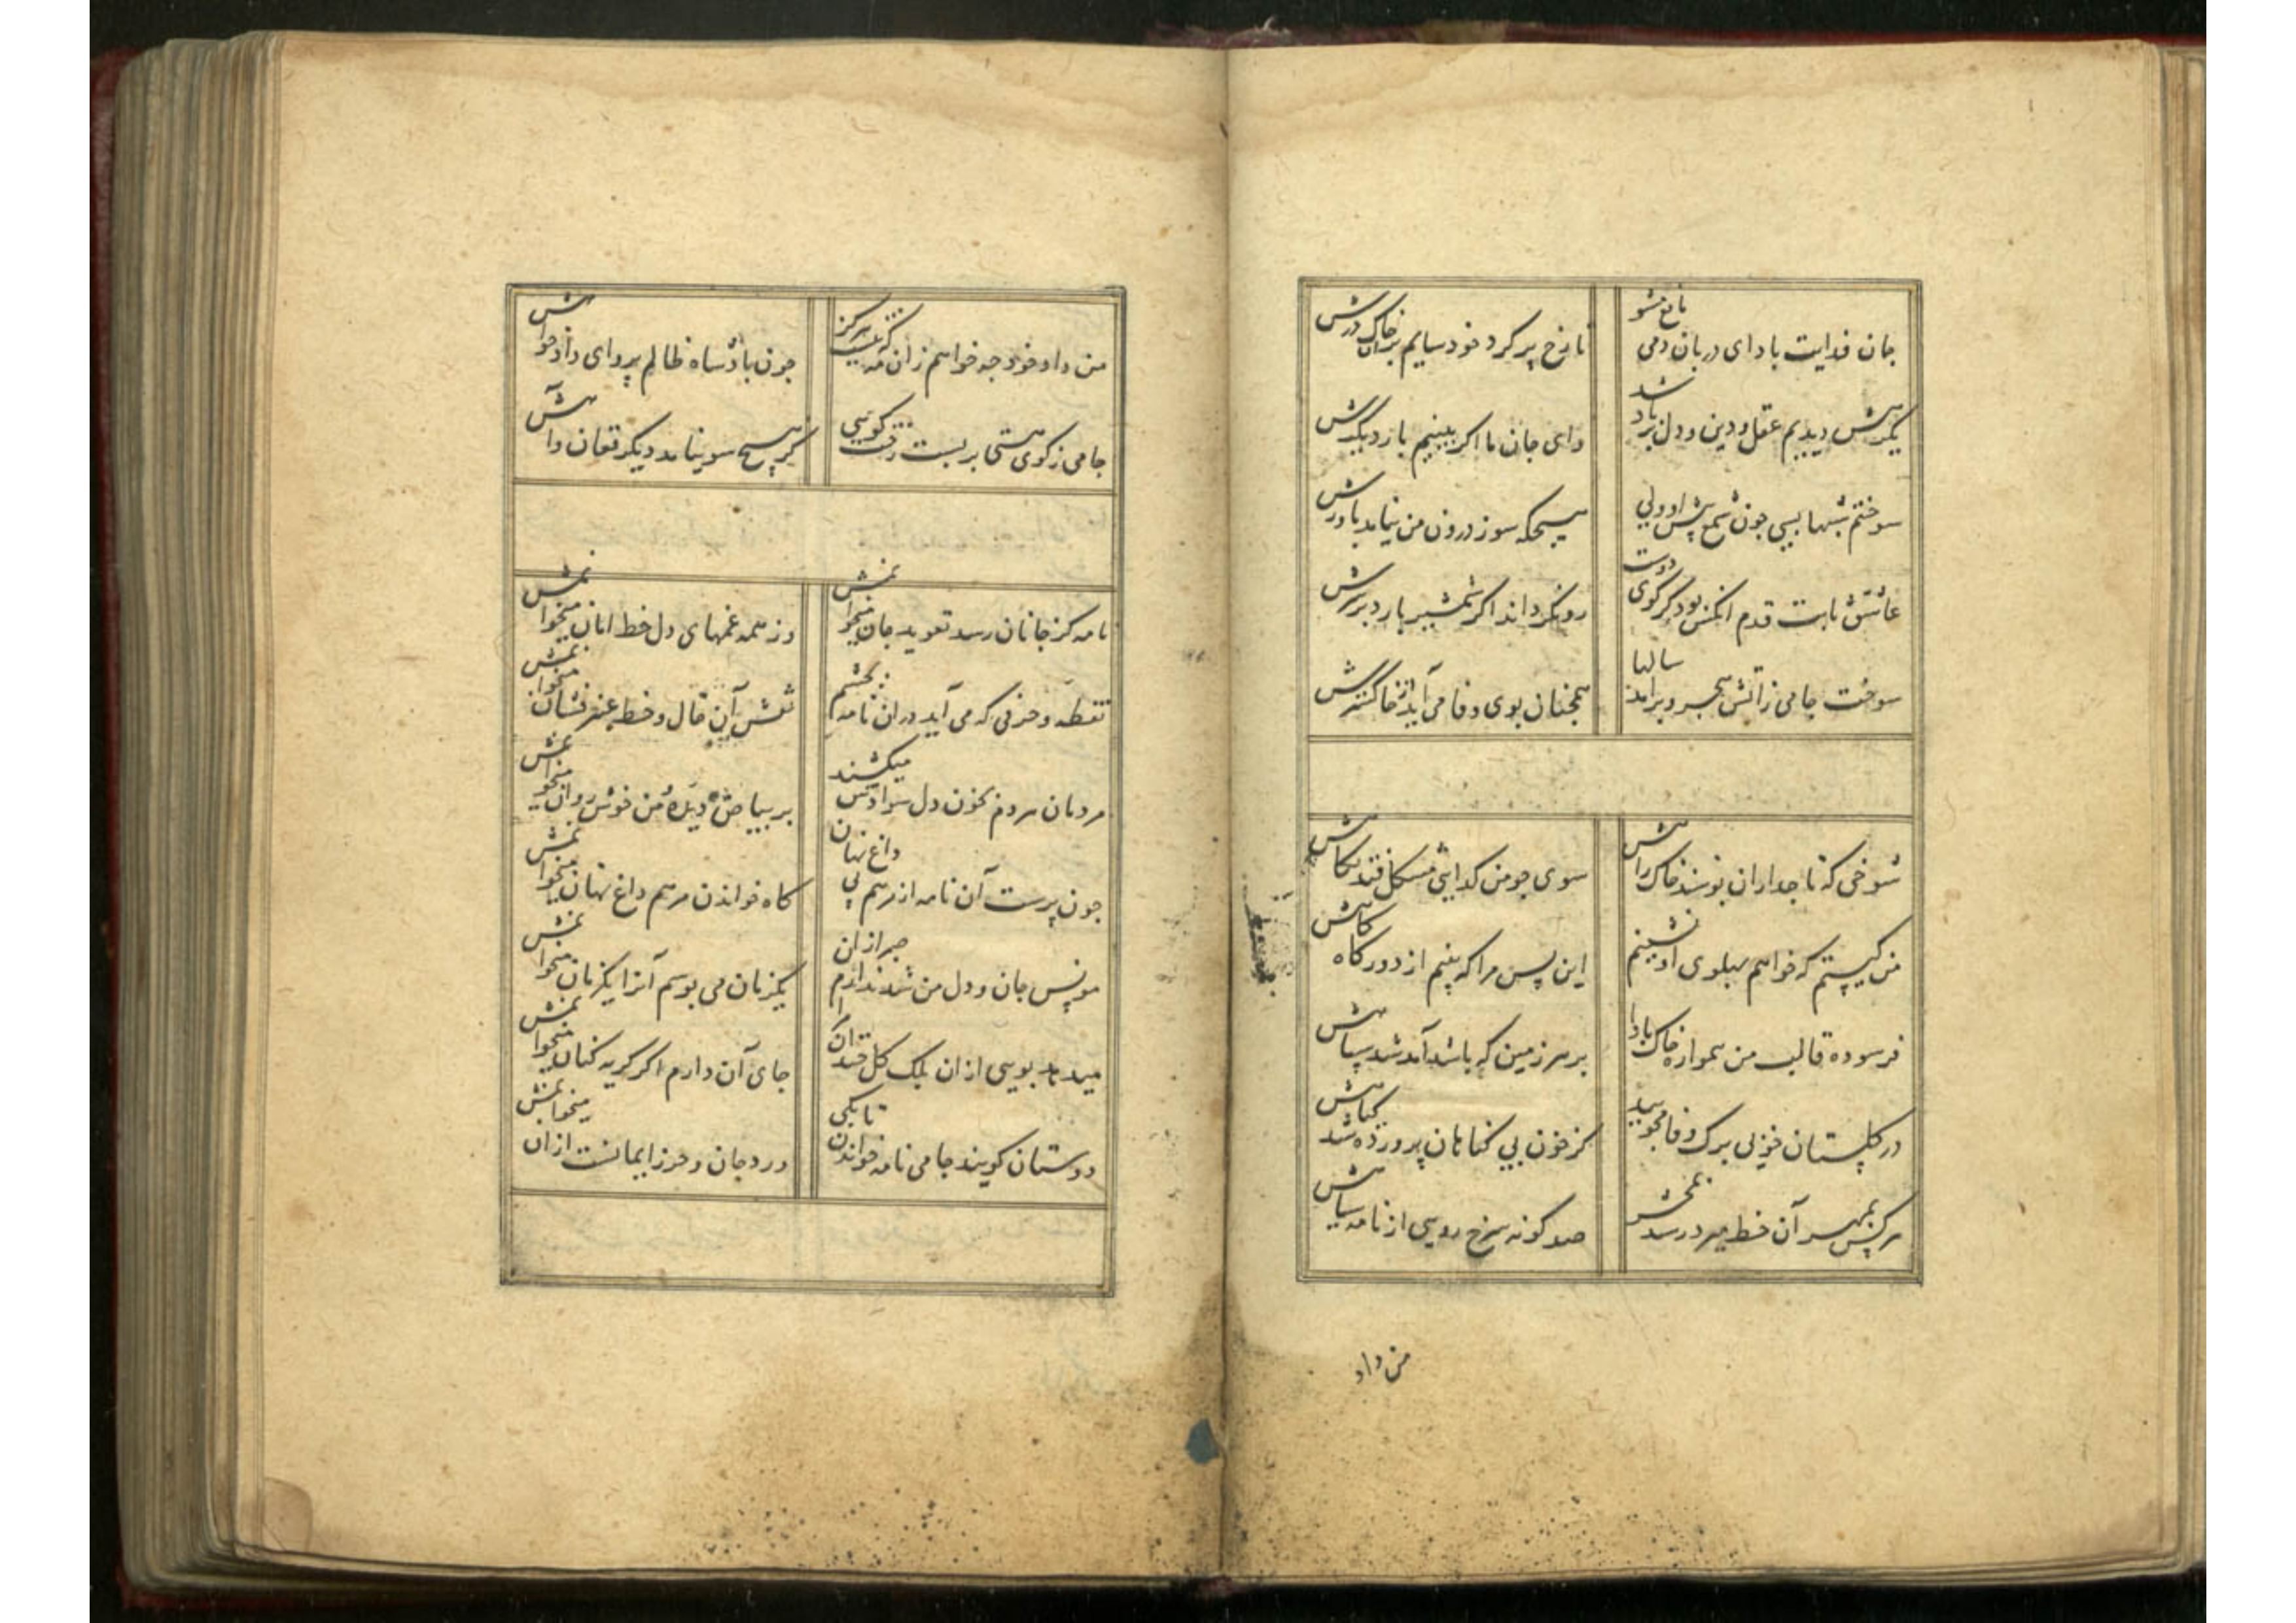 جان فدایت باد ای دربان دمی مانع مشو
تا رخ پر کرد خود سایم بران خاک درش
یکرهش دیدیم عقل و دین و دل برباد شد
وای جان ما اکر بینیم بار دیکرش
سوختم شبها بسی چون شمع پیش او ولی
هیچکه سوز درون من نیامد باورش
عاشق ثابت قدم انکس بود کز کوی دوست
رو نکرداند اکر شمشیر بارد بر سرش
سوخت جامی ز آتش هجر و برامد سالها
همچنان بوی وفا می آید از خاکسترش
شوخی که تاجداران بوسند خاک راهش
سوی چو من کدایی مشکل فتد نکاهش
من کیستم که خواهم پهلوی او نشینم
این بس مرا که بینم از دور کاه کاهش
فرسوده قالب من هموار خاک بادا
بر هر زمین که باشد آمد شد سپاهش
در کلستان خوبی برک وفا مجویید
کز خون بی کناهان پرورده شد کیاهش
هرکس بمهر آن خط میرد رسد بمحشر
صد کونه سرخ رویی از نامه سیاهش
من داد
من داد خود چه خواهم زان مه که نیست هرکز
چون بادشاه ظالم پروای دادخواهش
جامی ز کوی هستی بربست رخت کویی
کز هیچ سو نیامد دیکر فغان و آهش
نامه کز جانان رسد تعوید جان میخوانمش
وز همه غمهای دل خط امان میخوانمش
نقطه و حرفی که می آید دران نامه بچشم
نقش آن خال و خط عنبرفشان میخوانمش
مردمان هردم بخون دل سوادش میکشند
بر بیاض دیده من خوش روان میخوانمش
چون پرست آن نامه از مرهم پی داغ نهان
کاه خواندن مرهم داغ نهان میخوانمش
مونس جان و دل من شد ندارم صبر ازان
یکزمان می بوسم آنرا یکزمان میخوانمش
میدهد بویی ازان یک کل خندان
جای آن دارم اکر کریه کنان میخوانمش
دوستان کویند جامی نامه خواندن تا بکی
ورد جان و حرز ایمانست ازان میخوانمش